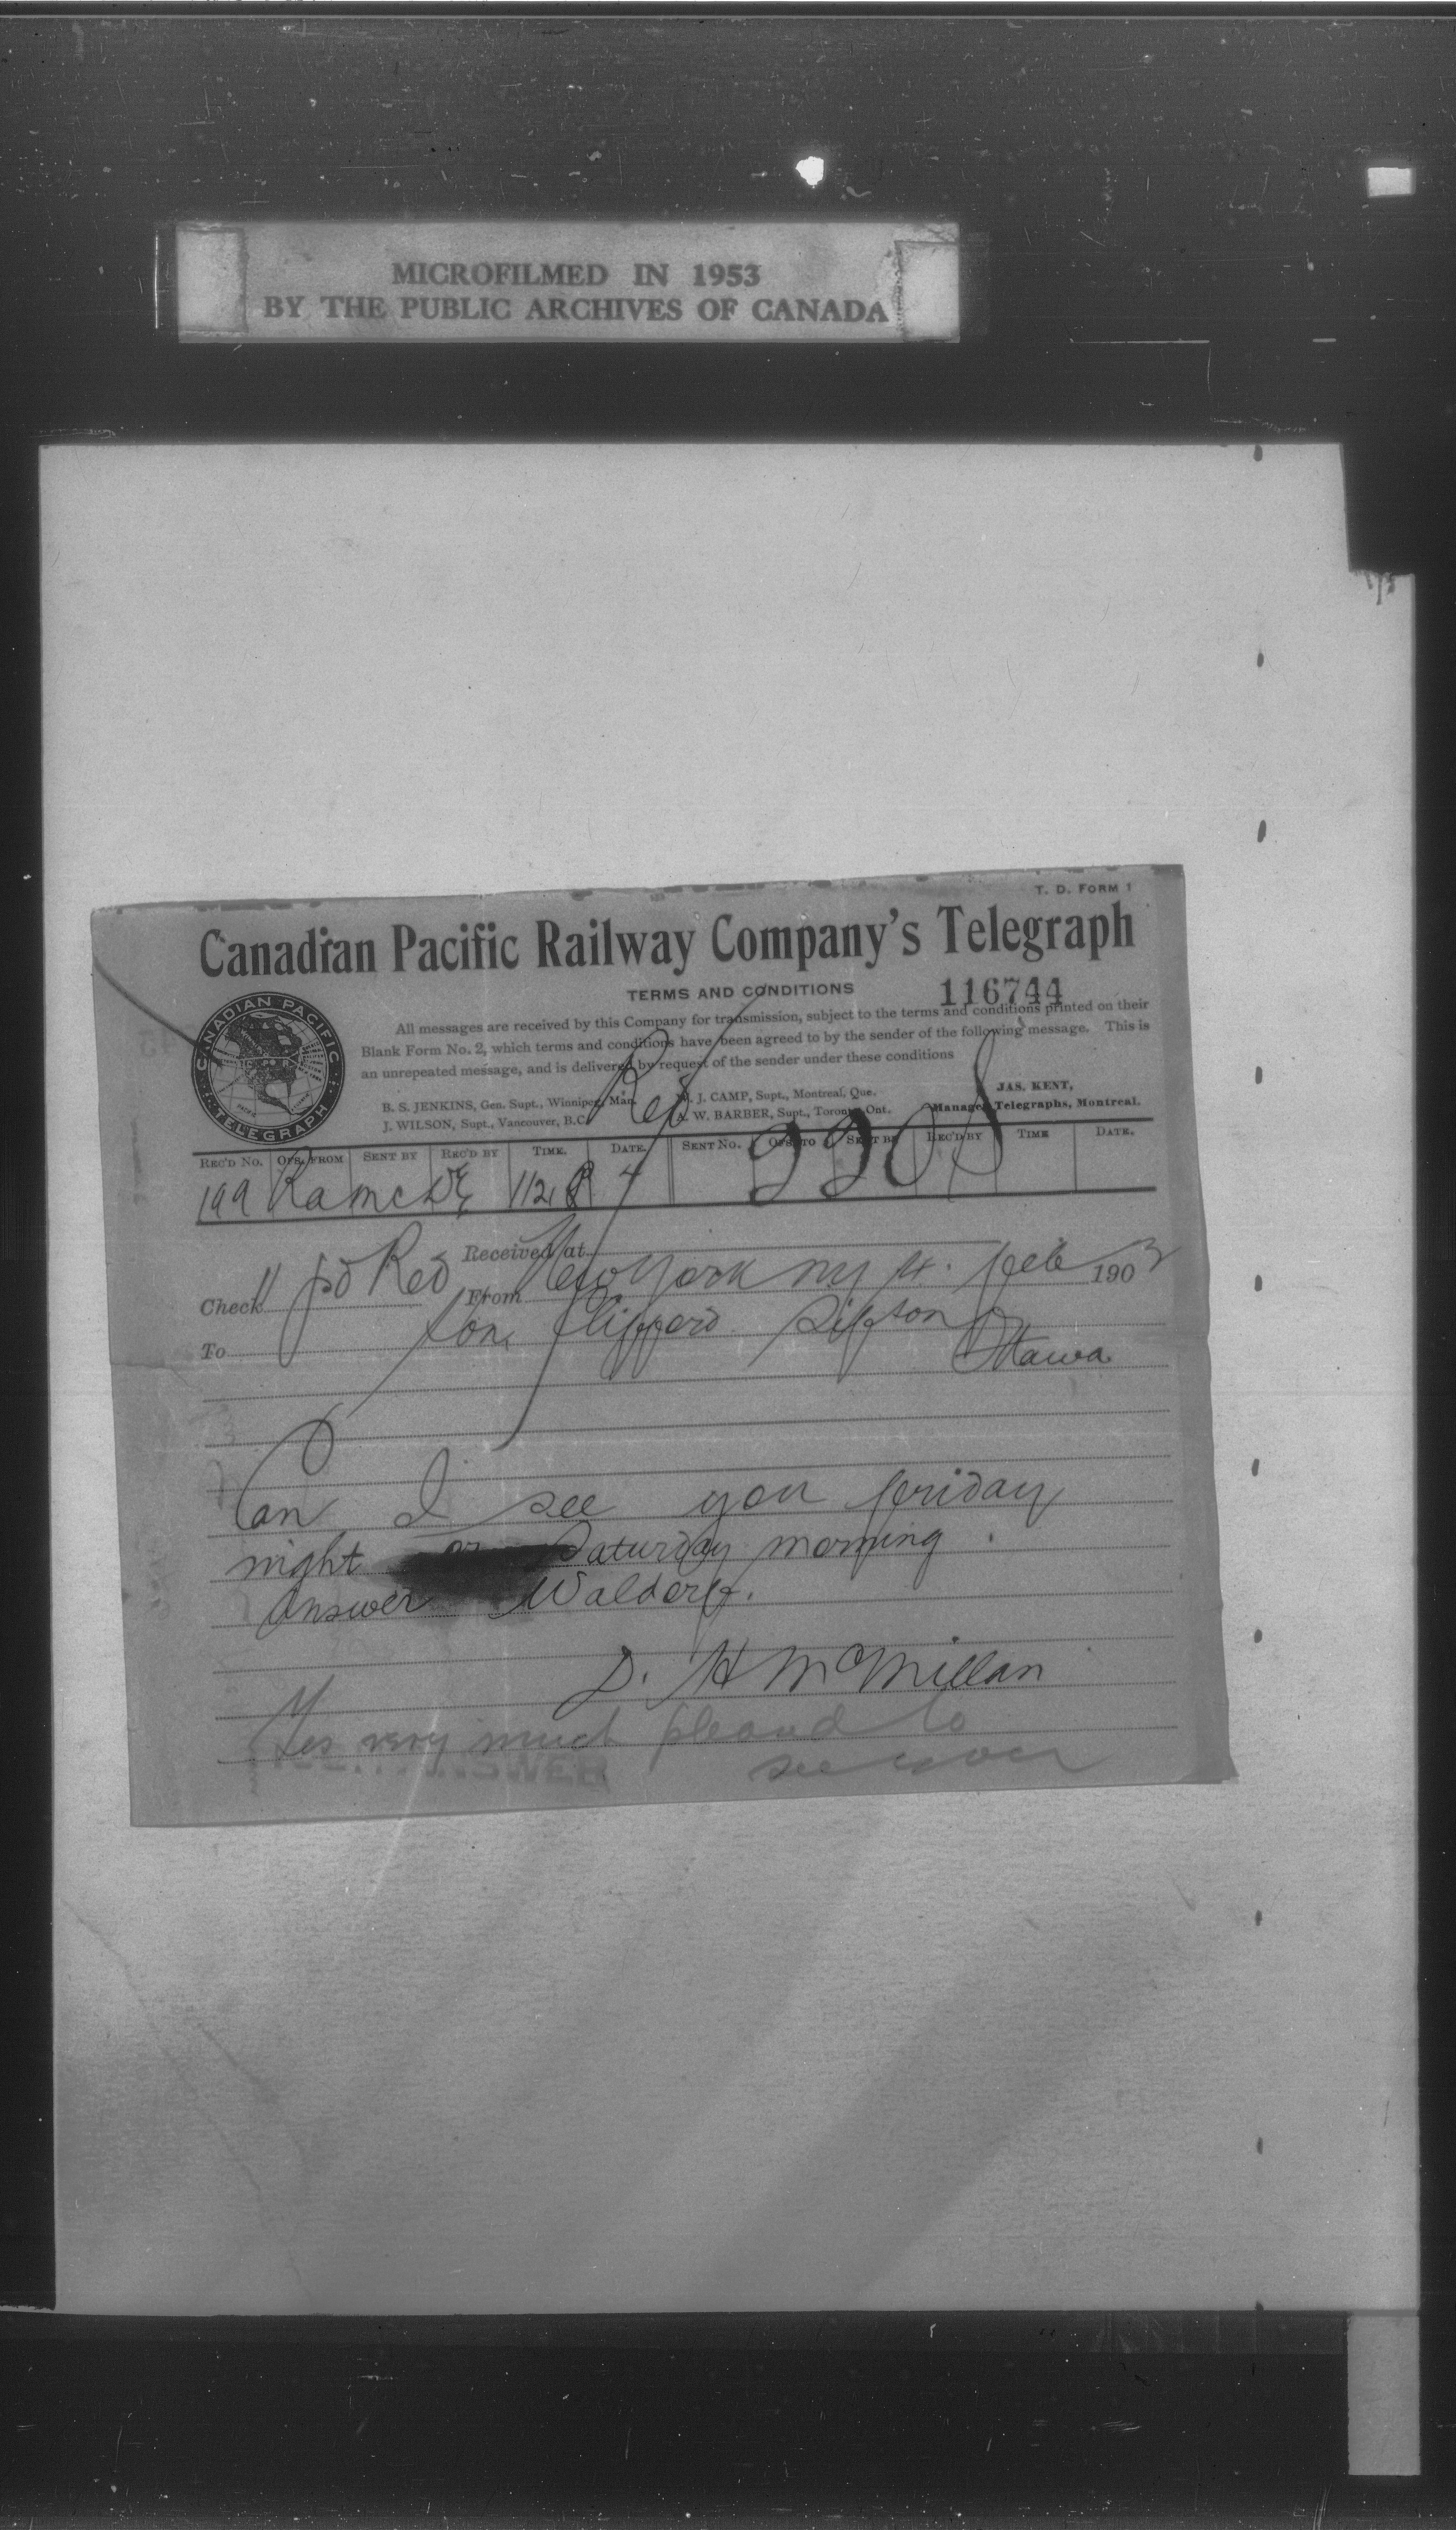 MICROFILMED IN 1953
BY THE PUBLIC ARCHIVES OF CANADA
T. D. FORM 1
Canadian Pacific Railway Company's Telegraph
TERMS AND CONDITIONS
116744
CANADIAN PACIFIC TELEGRAPH
All messages are received by this Company for transmission, subject to the terms and conditions printed on their
Blank Form No. 2, which terms and conditions have been agreed to by the sender of the following message. This is
an unrepeated message, and is delivered by request of the sender under these conditions
B. S. JENKINS, Gen. Supt., Winnipeg, Man.
J. WILSON, Supt., Vancouver, B.C.
J. CAMP, Supt., Montreal, Que.
A. W. BARBER, Supt., Toronto, Ont.
JAS. KENT,
Manager Telegraphs, Montreal.
REC'D No. OFS. FROM SENT BY REC'D BY TIME. DATE. SENT No. OFS. TO SENT BY REC'D BY TIME DATE.
199 Ra mc 112 4
Received at
Check 11 pd From New York ny 4. feb 1903
To Hon. Clifford Sifton
Ottawa
Can I see you friday
night or Saturday morning.
Answer Waldorf.
D. H McMillan
Yes very much pleased to
see you